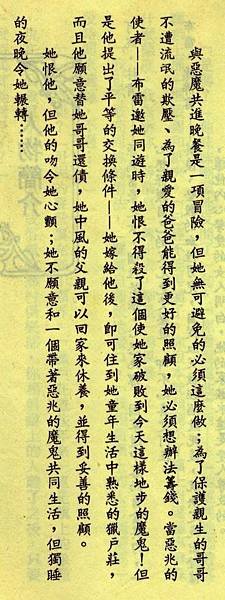 與惡魔共進晚餐是一項冒險，但她無可避免的必須這麼做；為了保護親生的哥哥
不遭流氓的欺壓、為了親愛的爸爸能得到更好的照顧，她必須想辦法籌錢。當惡兆的
使者——布雷邀她同遊時，她恨不得殺了這個使她家破敗到今天這樣地步的魔鬼！但
是他提出了平等的交換條件——她嫁給他後，即可住到她童年生活中熟悉的獵戶莊，
而且他願意替她哥哥還債，她中風的父親可以回家來休養，並得到妥善的照顧。
她恨他，但他的吻令她心顫；她不願意和一個帶著惡兆的魔鬼共同生活，但獨睡
的夜晚令她輾轉……